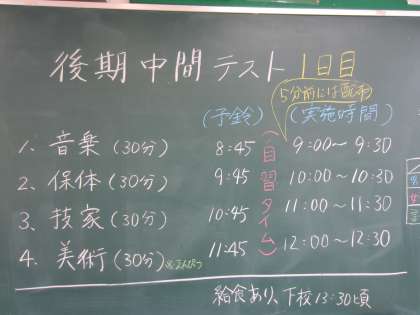 後期中間テスト 1日目
5分前には配布
(予鈴) (実施時間)
1. 音楽(30分) 8:45 9:00~9:30
2. 保体(30分) 9:45 10:00~10:30
3. 技家(30分) 10:45 11:00~11:30
4. 美術(30分) 11:45 12:00~12:30
(自習タイム)
給食あり、下校13:30頃